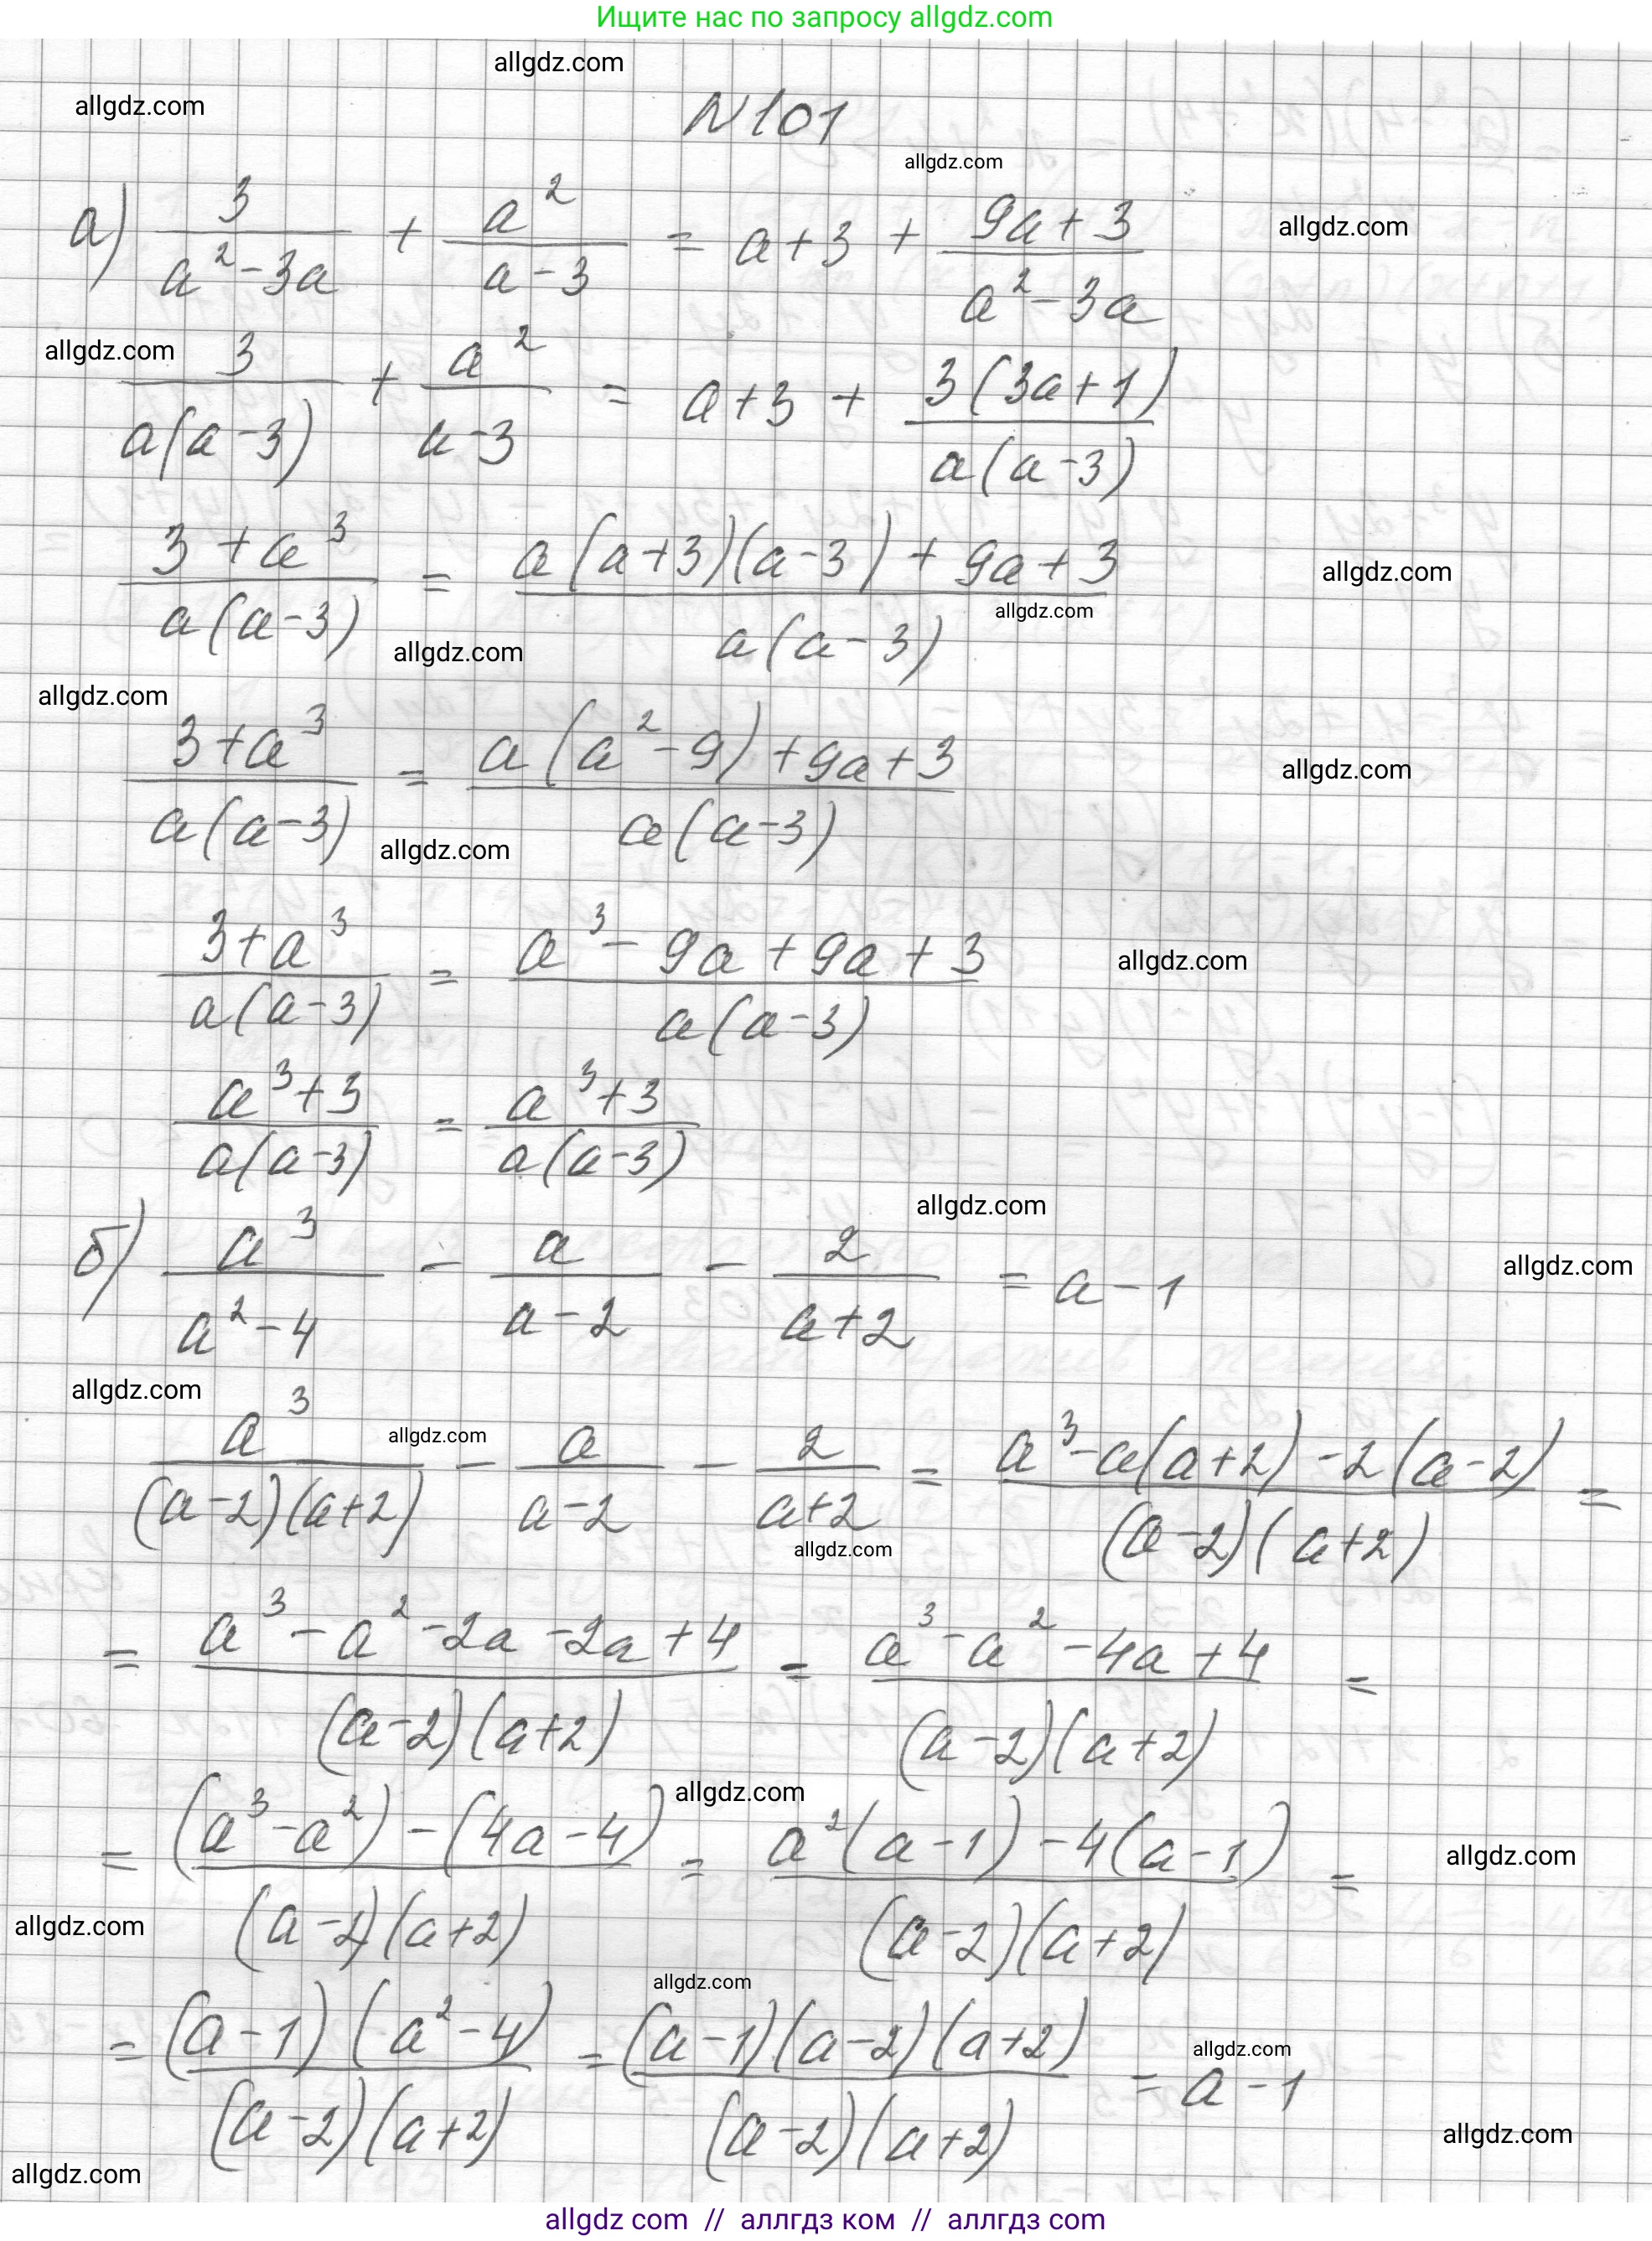 Ищите нас по запросу allgdz.com
allgdz.com
allgdz.com
N101
allgdz.com
а) 3/(a²-3a) + a²/(a-3) = a+3 + (9a+3)/(a²-3a)
allgdz.com
allgdz.com
3/(a(a-3)) + a²/(a-3) = a+3 + 3(3a+1)/(a(a-3))
(3+a³)/(a(a-3)) = (a(a+3)(a-3)+9a+3)/(a(a-3))
allgdz.com
allgdz.com
allgdz.com
allgdz.com
(3+a³)/(a(a-3)) = (a(a²-9)+9a+3)/(a(a-3))
allgdz.com
allgdz.com
(3+a³)/(a(a-3)) = (a³-9a+9a+3)/(a(a-3))
allgdz.com
(a³+3)/(a(a-3)) = (a³+3)/(a(a-3))
allgdz.com
б) a³/(a²-4) - a/(a-2) - 2/(a+2) = a-1
allgdz.com
allgdz.com
allgdz.com
a³/((a-2)(a+2)) - a/(a-2) - 2/(a+2) = (a³-a(a+2)-2(a-2))/((a-2)(a+2)) =
allgdz.com
= (a³-a²-2a-2a+4)/((a-2)(a+2)) = (a³-a²-4a+4)/((a-2)(a+2)) =
allgdz.com
= ((a³-a²)-(4a-4))/((a-2)(a+2)) = (a²(a-1)-4(a-1))/((a-2)(a+2)) =
allgdz.com
allgdz.com
allgdz.com
= ((a-1)(a²-4))/((a-2)(a+2)) = ((a-1)(a-2)(a+2))/((a-2)(a+2)) = a-1
allgdz.com
allgdz.com
allgdz.com
allgdz com // аллгдз ком // аллгдз com